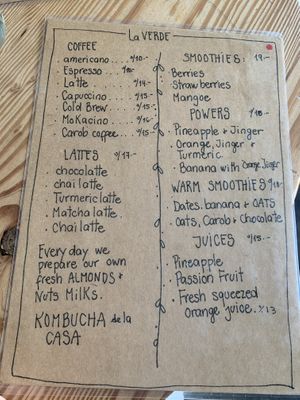 La VERDE
COFFEE
americano
Espresso
Latte
Capuccino
Cold Brew
Mokacino
Carob coffee
LATTES
chocolatte
chai latte
Turmeric latte
Matcha latte
Chai latte
Every day we
prepare our own
fresh ALMONDS +
Nuts Milks.
KOMBUCHA de la
CASA
SMOOTHIES: 19.-
Berries
Strawberries
Mangoe
POWERS
Pineapple + Jinger
Orange, Jinger +
Turmeric
Banana with Orange, Jinger
WARM SMOOTHIES
Dates, banana + OATS
Oats, Carob + Chocolate
JUICES
Pineapple
Passion Fruit
Fresh squeezed
Orange juice.